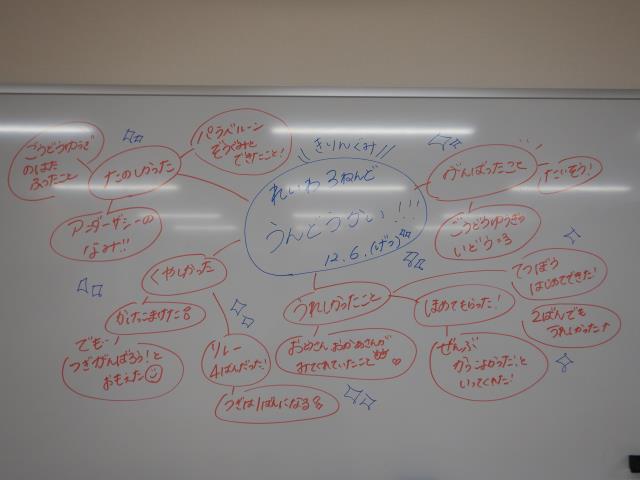 きりんぐみ
れいわ3ねんど
うんどうかい!!!
12.6.(げつ)
たのしかった
パラベルーン
ぞうぐみと
できたこと!
のはた
ふったこと
アンダーザシーの
なみ!!
がんばったこと
たいそう!
いどう
くやしかった
かけっこまけた
でも…
つぎがんばろう!と
おもえた
リレー
4ばんだった!
つぎは1ばんになる
うれしかったこと
おとうさん おかあさんが
みてくれていたこと
ほめてもらった!
ぜんぶ
かっこよかった!と
いってくれた!
てつぼう
はじめてできた!
2ばんでも
うれしかった